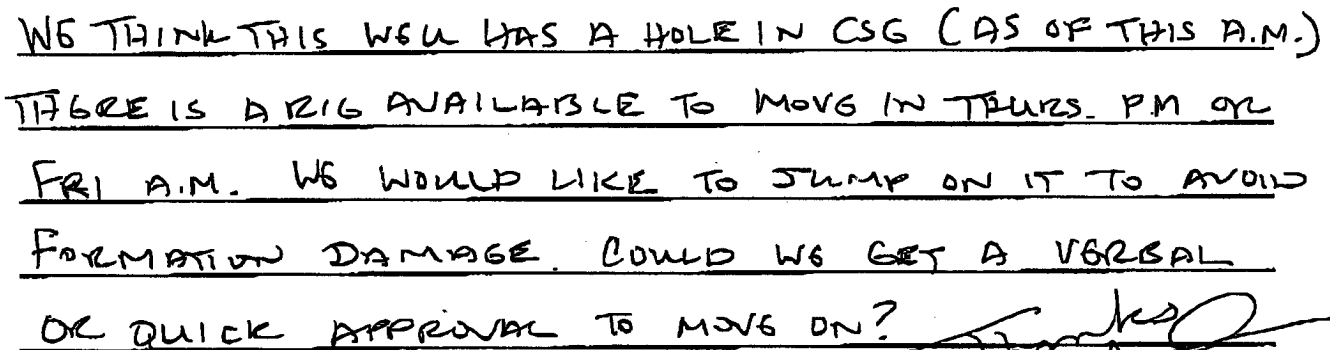 WE THINK THIS WELL HAS A HOLE IN CSG (AS OF THIS A.M.)
THERE IS A RIG AVAILABLE TO MOVE IN THURS. P.M OR
FRI A.M. WE WOULD LIKE TO JUMP ON IT TO AVOID
FORMATION DAMAGE. COULD WE GET A VERBAL
OR QUICK APPROVAL TO MOVE ON? Thanks